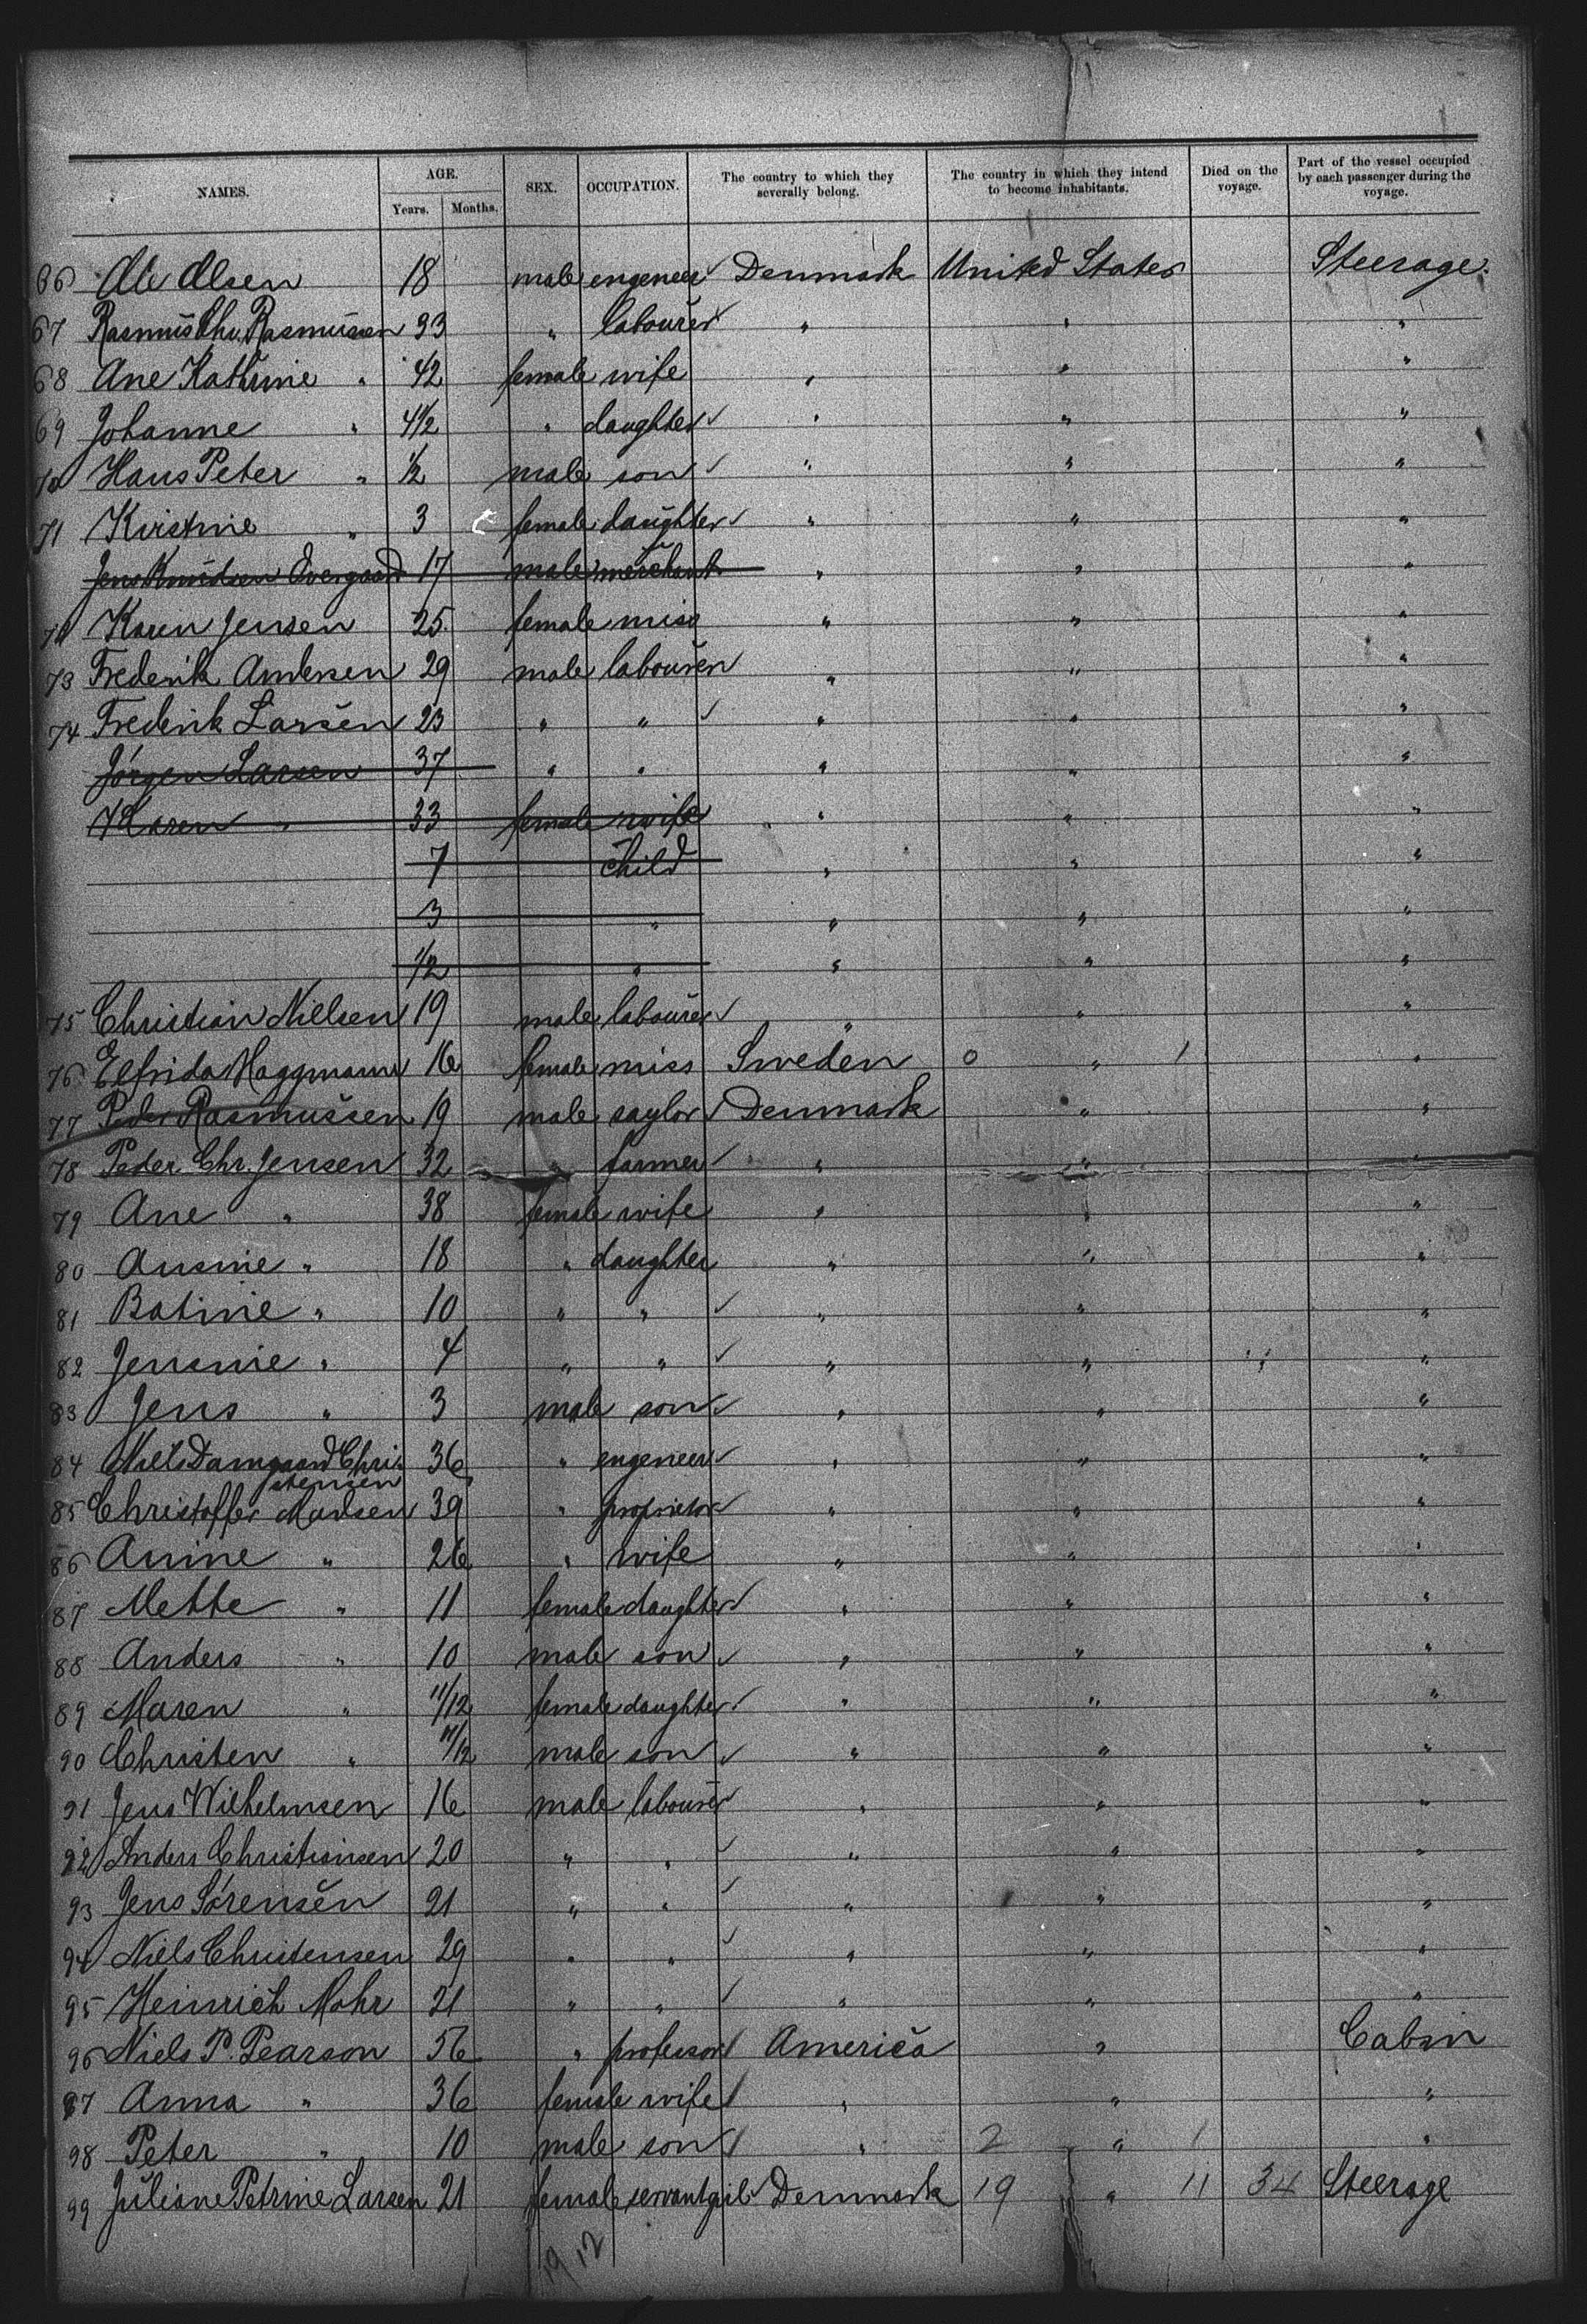 NAMES. AGE. SEX. OCCUPATION. The country to which they severally belong. The country in which they intend to become inhabitants. Died on the voyage. Part of the vessel occupied by each passenger during the voyage.
Years. Months.
66 Ole Olsen 18 male engeneer Denmark United States Steerage.
67 Rasmus Chr. Rasmussen 33 " labourer " " "
68 Ane Kathrine " 42 female wife " " "
69 Johanne " 4 1/2 " daughter " " "
70 Hans Peter " 1/2 male son " " "
71 Kirstine " 3 female daughter " " "
Jens Knudsen Overgaard 17 male merchant " " "
72 Karen Jensen 25 female miss " " "
73 Frederik Andersen 29 male labourer " " "
74 Frederik Larsen 23 " " " " "
Jörgen Larsen 37 " " " " "
Karen " 33 female wife " " "
7 child " " "
3 " " " "
1/2 " " " "
75 Christian Nielsen 19 male labourer " " "
76 Elfrida Haggmann 16 female miss Sweden 0 " 1 "
77 Peder Rasmussen 19 male saylor Denmark " "
78 Peder Chr. Jensen 32 " farmer " " "
79 Ane " 38 female wife " " "
80 Ansine " 18 " daughter " " "
81 Batinie " 10 " " " " "
82 Jensine " 4 " " " " "
83 Jens " 3 male son " " "
84 Niels Damgaard Chri- 36 " engeneer " " "
stensen
85 Christoffer Madsen 39 " proprietor " " "
86 Anine " 26 " wife " " "
87 Mette " 11 female daughter " " "
88 Anders " 10 male son " " "
89 Maren " 11/12 female daughter " " "
90 Christen " 11/12 male son " " "
91 Jens Wilhelmsen 16 male labourer " " "
92 Anders Christiansen 20 " " " " "
93 Jens Sörensen 21 " " " " "
94 Niels Christensen 29 " " " " "
95 Heinrich Mohr 21 " " " " "
96 Niels P. Pearson 56 " professor America " Cabin
97 Anna " 36 female wife " " "
98 Peter " 10 male son " 2 " 1 "
99 Juliane Petrine Larsen 21 female servantgirl Denmark 19 " 11 34 Steerage
19 12